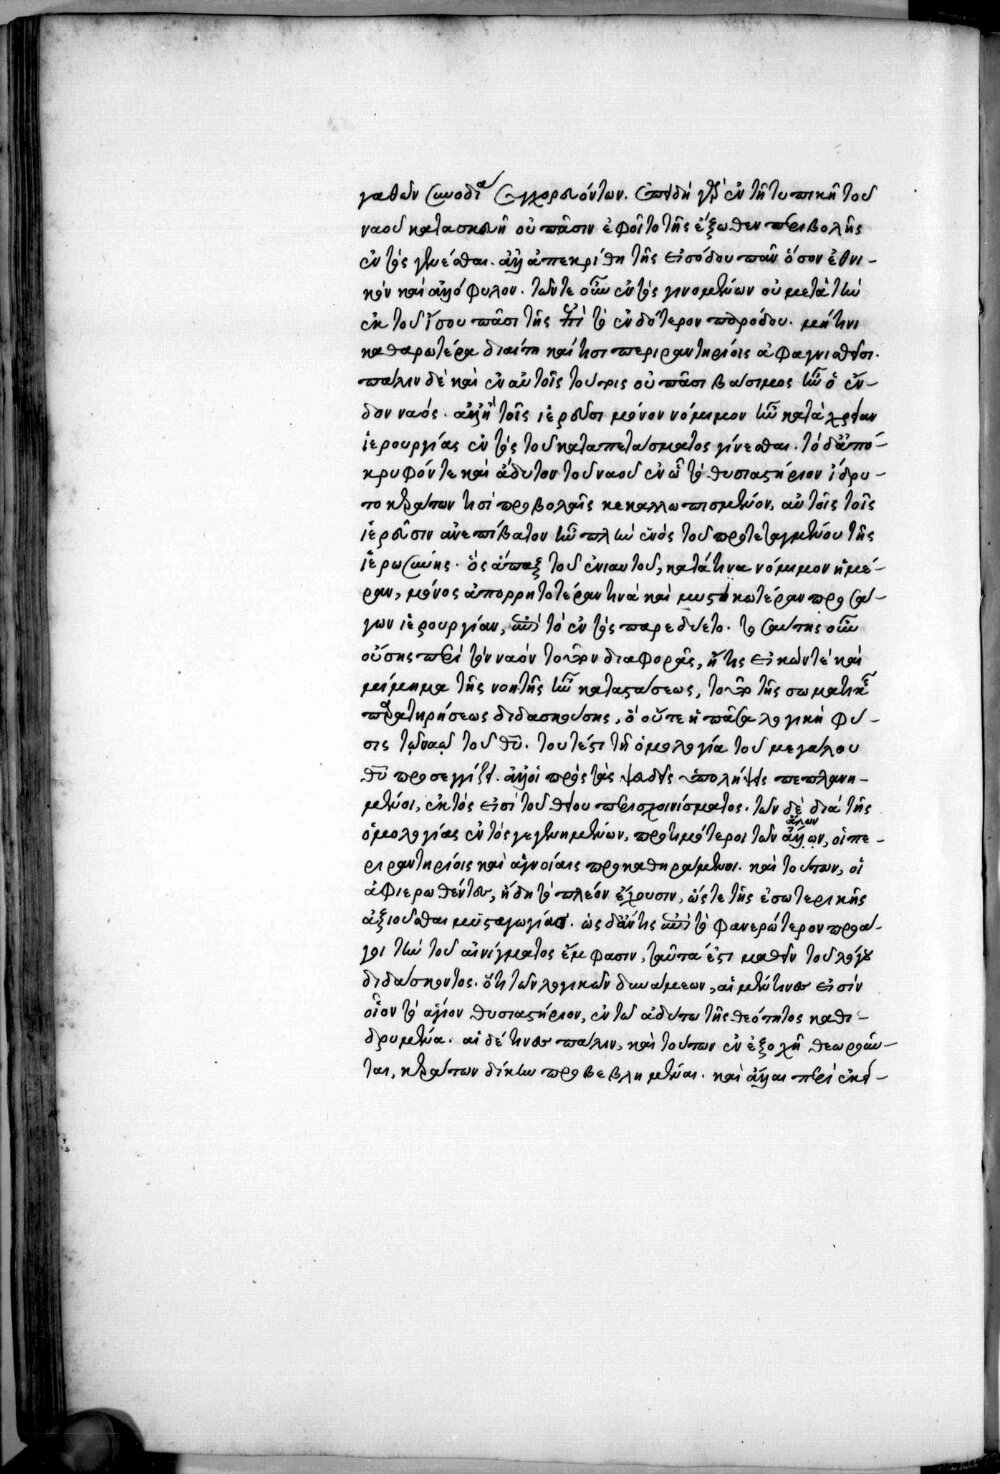 γαθῶν συνοδία συγχορευόντων. ἐπειδὴ γὰρ ἐν τῇ τυπικῇ τοῦ
ναοῦ κατασκευῇ οὐ πᾶσιν ἐφεῖτο τῆς ἔξωθεν περιβολῆς
ἐντὸς γενέσθαι. ἀλλ' ἀπεκρίθη τῆς εἰσόδου πᾶν ὅσον ἐθνι-
κὸν καὶ ἀλλόφυλον. τῶν τε οὖν ἐντὸς γινομένων οὐ μετὰ τὴν
ἐκ τοῦ ἴσου πᾶσι τῆς ἐπὶ τὸ ἐνδότερον παρόδου. μή τινι
καθαρωτέρα διαίτη καί τισι περιραντηρίοις ἀφαγνισθεῖσι.
πάλιν δὲ καὶ ἐν αὐτοῖς τούτοις οὐ πᾶσι βάσιμος ἦν ὁ ἔν-
δον ναός. ἀλλ' ἢ τοῖς ἱερεῦσι μόνον νόμιμον ἦν κατὰ χρείαν
ἱερουργίας ἐντὸς τοῦ καταπετάσματος γίνεσθαι. τὸ δ' ἀπό-
κρυφόν τε καὶ ἄδυτον τοῦ ναοῦ ἐν ᾧ τὸ θυσιαστήριον ἵδρυ-
το κεράτων τισὶ προβολαῖς κεκαλλωπισμένον, αὐτοῖς τοῖς
ἱερεῦσιν ἀνεπίβατον ἦν πλὴν ἑνὸς τοῦ προτεταγμένου τῆς
ἱερωσύνης. ὃς ἅπαξ τοῦ ἐνιαυτοῦ, κατά τινα νόμιμον ἡμέ-
ραν, μόνος ἀπορρητοτέραν τινὰ καὶ μυστικωτέραν προσά-
γων ἱερουργίαν, ἐπὶ τὸ ἐντὸς παρεδύετο. τοσαύτης οὖν
οὔσης περὶ τὸν ναὸν τοῦτον διαφορᾶς, ἥτις εἰκών τε καὶ
μίμημα τῆς νοητῆς ἦν καταστάσεως, τοῦτο τῆς σωματικῆς
παρατηρήσεως διδασκούσης, ὅ οὔτε ἡ πᾶσα λογικὴ φύ-
σις τῷ ναῷ τοῦ θῦ. τουτέστι τῇ ὁμολογία τοῦ μεγάλου
θῦ προσεγγίζει. ἀλλ' οἱ πρὸς τὰς ψευδεῖς ὑπολήψεις πεπλανη-
μένοι, ἐκτός εἰσι τοῦ θείου περισχοινίσματος. τῶν δὲ διὰ τῆς
ὁμολογίας ἐντὸς γεγενημένων, προτιμότεροι τῶν ἄλλων, οἱ πε-
ριραντηρίοις καὶ ἁγνείαις προκαθηράμενοι. καὶ τούτων, οἱ
ἀφιερωθέντες, ἤδη τὸ πλέον ἔχουσιν, ὥστε τῆς ἐσωτερικῆς
ἀξιοῦσθαι μυσταγωγίας. ὡς δ' ἄν τις ἐπὶ τὸ φανερώτερον προά-
γοι τὴν τοῦ αἰνίγματος ἔμφασιν, ταῦτά ἐστι μαθεῖν τοῦ λόγου
διδάσκοντος. ὅτι τῶν λογικῶν δυνάμεων, αἱ μέν τινες εἰσὶν
οἷον τὸ ἅγιον θυσιαστήριον, ἐν τῷ ἀδύτω τῆς θεότητος καθι-
δρυμέναι. αἱ δέ τινες πάλιν, καὶ τούτων ἐν ἐξοχῇ θεωροῦν-
ται, κεράτων δίκην προβεβλημέναι. καὶ ἄλλαι περὶ ἐκεί-